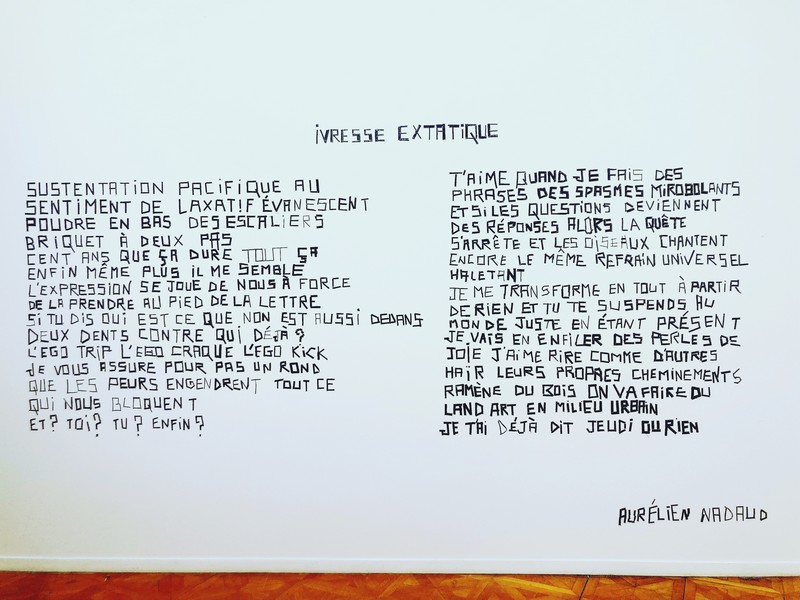 iVRESSE EXTATiQUE
SUSTENTATION PACiFiQUE AU
SENTiMENT DE LAXAT!F ÉVANESCENT
POUDRE EN BAS DES ESCALiERS
BRiQUET À DEUX PAS
CENT ANS QUE ÇA DURE TOUT ÇA
ENFiN MÊME PLUS iL ME SEMBLE
L'EXPRESSiON SE JOUE DE NOUS À FORCE
DE LA PRENDRE AU PiED DE LA LETTRE
Si TU DiS OUi EST CE QUE NON EST AUSSi DEDANS
DEUX DENTS CONTRE QUi DÉJÀ ?
L'EGO TRiP L'EGO CRAQUE L'EGO KiCK
JE VOUS ASSURE POUR PAS UN ROND
QUE LES PEURS ENGENDRENT TOUT CE
QUi NOUS BLOQUENT
ET ? TOi ? TU ? ENFiN ?
T'AiME QUAND JE FAiS DES
PHRASES DES SPASMES MiROBOLANTS
ET Si LES QUESTiONS DEViENNENT
DES RÉPONSES ALORS LA QUÊTE
S'ARRÊTE ET LES OiSEAUX CHANTENT
ENCORE LE MÊME REFRAiN UNiVERSEL
HALETANT
JE ME TRANSFORME EN TOUT À PARTiR
DE RiEN ET TU TE SUSPENDS AU
MONDE JUSTE EN ÉTANT PRÉSENT
JE VAiS EN ENFiLER DES PERLES DE
JOiE J'AiME RiRE COMME D'AUTRES
HAïR LEURS PROPRES CHEMiNEMENTS
RAMÈNE DU BOiS ON VA FAiRE DU
LAND ART EN MiLiEU URBAiN
JE T'Ai DÉJÀ DiT JEUDi OU RiEN
AURÉLiEN NADAUD